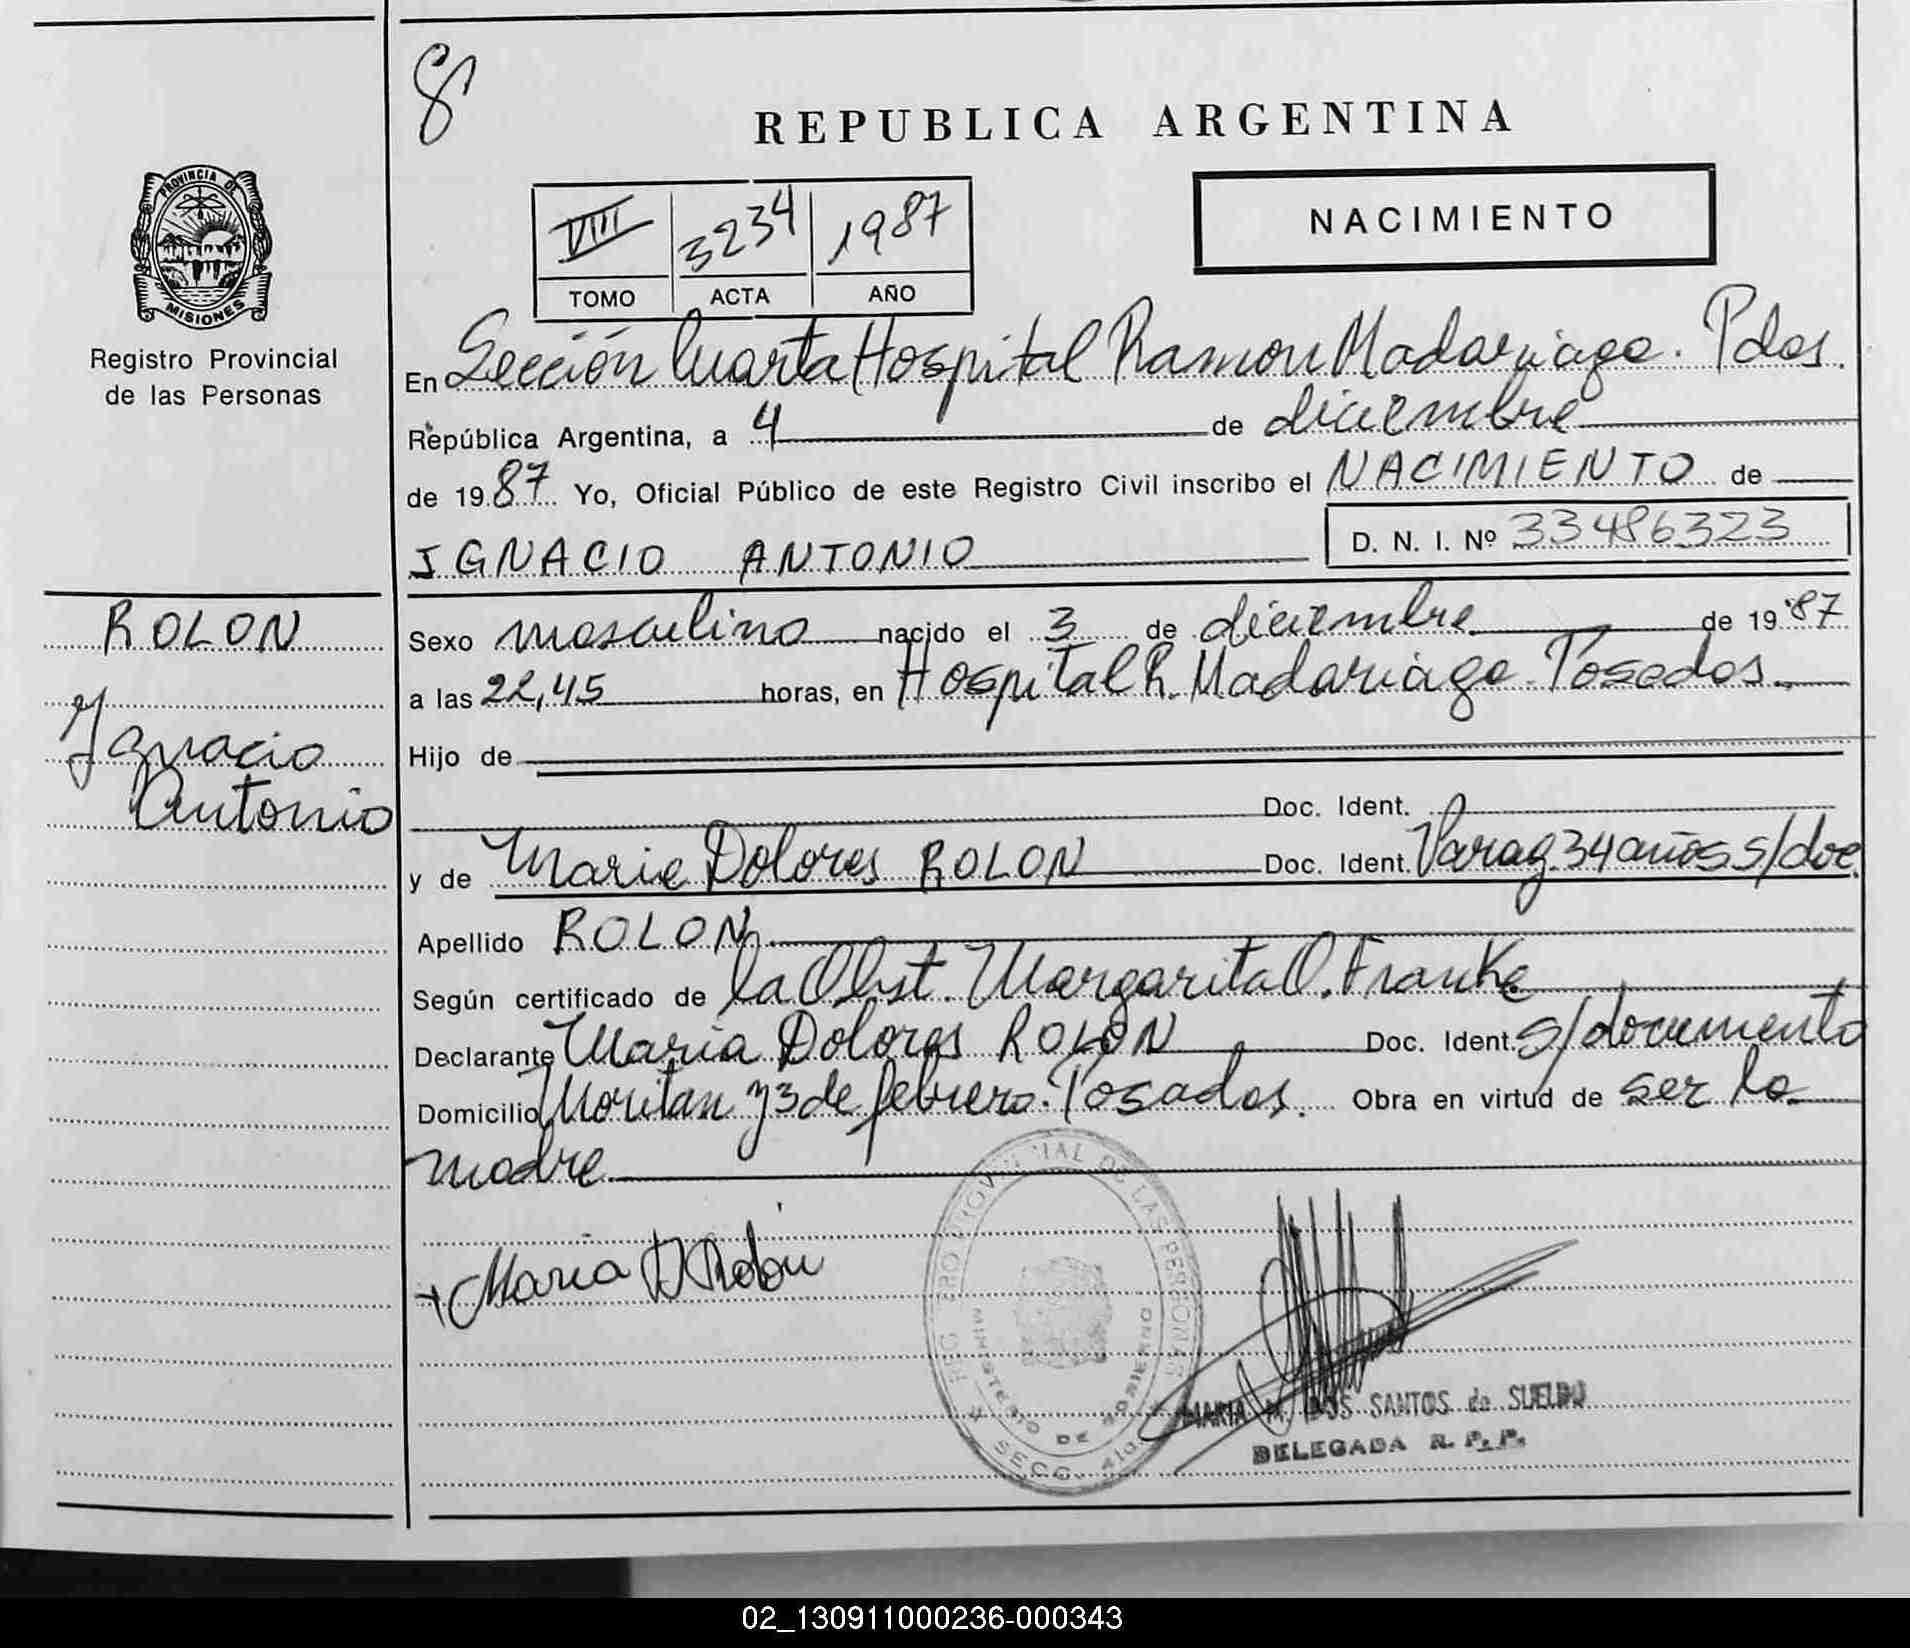 8
REPUBLICA ARGENTINA
PROVINCIA DE
MISIONES
Registro Provincial
de las Personas
VIII 3234 1987
TOMO ACTA AÑO
NACIMIENTO
En Sección Cuarta Hospital Ramon Madariaga. Pdas.
República Argentina, a 4 de diciembre
de 1987 Yo, Oficial Público de este Registro Civil inscribo el NACIMIENTO de
IGNACIO ANTONIO D. N. I. Nº 33486323
ROLON
Ignacio
Antonio
Sexo masculino nacido el 3 de diciembre de 1987
a las 22,45 horas, en Hospital R. Madariaga. Posadas.
Hijo de
Doc. Ident.
y de Maria Dolores ROLON Doc. Ident. Parag. 34 años s/doc.
Apellido ROLON
Según certificado de la Obst. Margarita O. Franke
Declarante Maria Dolores ROLON Doc. Ident. s/documento
Domicilio y 3 de febrero. Posadas. Obra en virtud de ser la
madre
Maria D Rolon
REG PRO PROVINCIAL DE LAS PERSONAS
MINISTERIO DE GOBIERNO
SECC. 4ta.
MARIA M. DOS SANTOS de SUELDO
DELEGADA R. P. P.
02_130911000236-000343